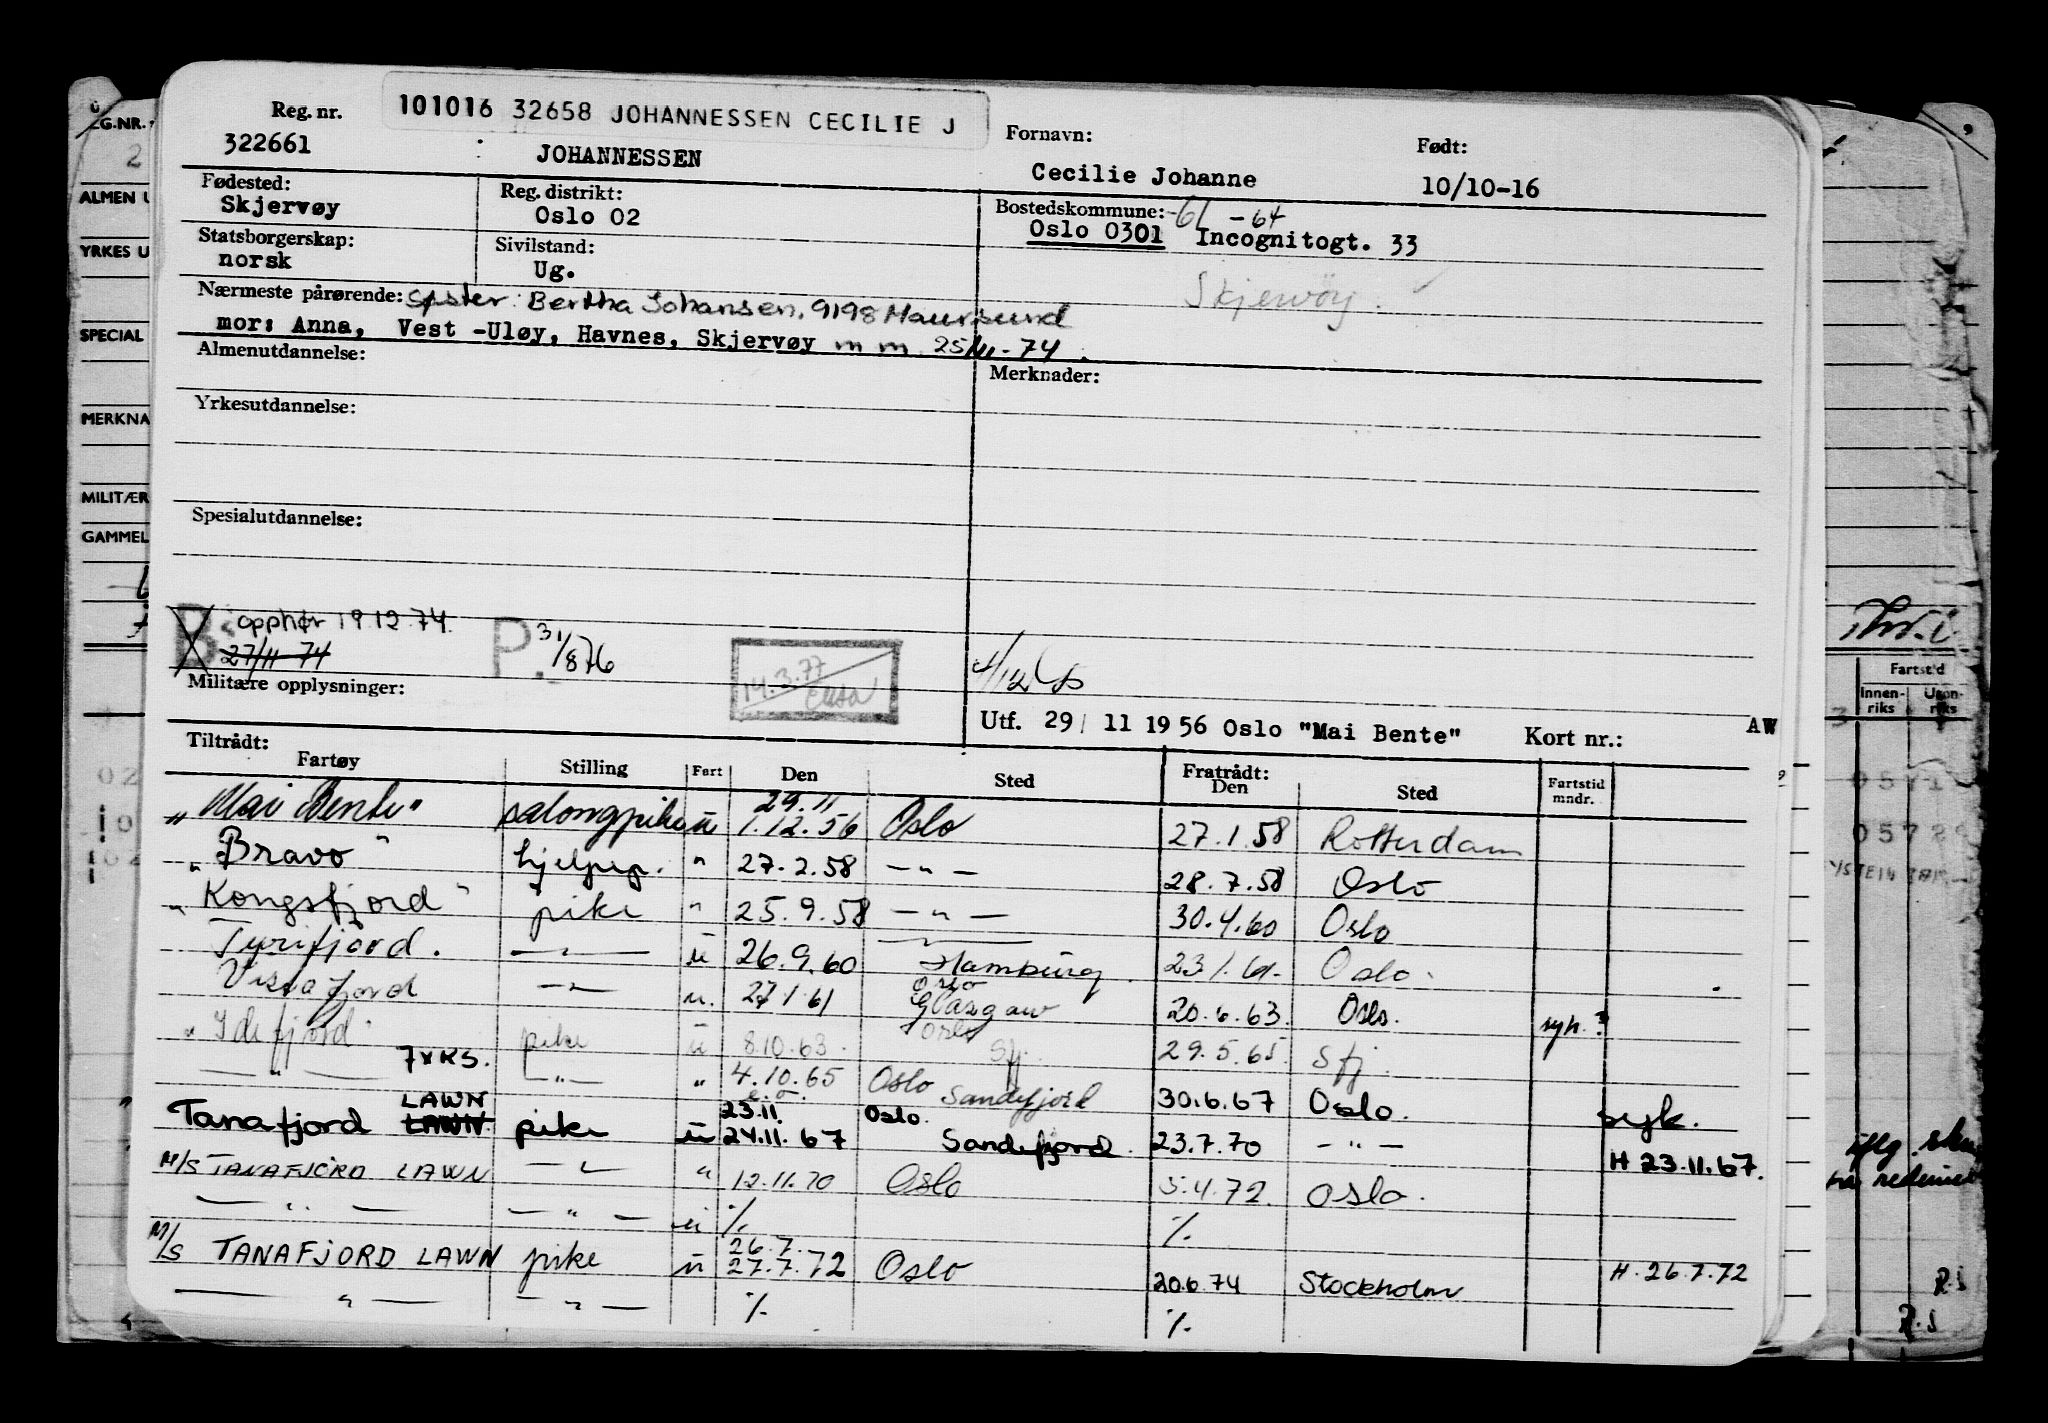 101016 32658 JOHANNESSEN CECILIE J
Reg. nr.
322661
JOHANNESSEN
Fornavn:
Cecilie Johanne
Født:
10/10-16
Fødested:
Skjervøy
Reg. distrikt:
Oslo 02
Bostedskommune: -61 -64
Oslo 0301 Incognitogt. 33
Statsborgerskap:
norsk
Sivilstand:
Ug.
Skjervøy.
Nærmeste pårørende: Søster: Bertha Johansen, 9198 Maursund
mor: Anna, Vest -Uløy, Havnes, Skjervøy m m 25/11-74.
Almenutdannelse:
Merknader:
Yrkesutdannelse:
Spesialutdannelse:
B opphør 19.12.74.
27/11-74
P. 31/8 76
14.3.77
Militære opplysninger:
Utf. 29/ 11 19 56 Oslo "Mai Bente" Kort nr.: AW
Tiltrådt:
Fartøy Stilling Fart Den Sted Fratrådt: Den Sted Fartstid mndr.
"Mai Bente" salongpike u 29.11 1.12.56 Oslo 27.1.58 Rotterdam
"Bravo" hjelpep. " 27.2.58 -"- 28.7.58 Oslo
"Kongsfjord" pike " 25.9.58 -"- 30.4.60 Oslo
Tyrifjord. -"- u 26.9.60 Hamburg 23.1.61. Oslo.
Vistafjord -"- u. 27.1.61 Oslo Glasgow 20.6.63. Oslo. syk.?
"Idefjord" pike u 8.10.63. Oslo Sfj. 29.5.65. Sfj.
-"- 7 x KS. -"- " 4.10.65 Oslo Sandefjord 30.6.67 Oslo. syk.
Tanafjord LAWN LAWN pike u 23.11 24.11.67 Oslo. Sandefjord. 23.7.70 -"- H 23.11.67.
M/S TANAFJORD LAWN -"- " 12.11.70 Oslo 5.4.72. Oslo.
-"- -"- u % %
M/S TANAFJORD LAWN pike u 26.7. 27.7.72 Oslo 20.6.74 Stockholm H. 26.7.72
-"- -"- % %
ALMEN U
YRKES U
SPECIAL
MERKNA
MILITÆR
GAMMEL
Fartstid
Innen-
riks
Uten-
riks
R.S
R.S